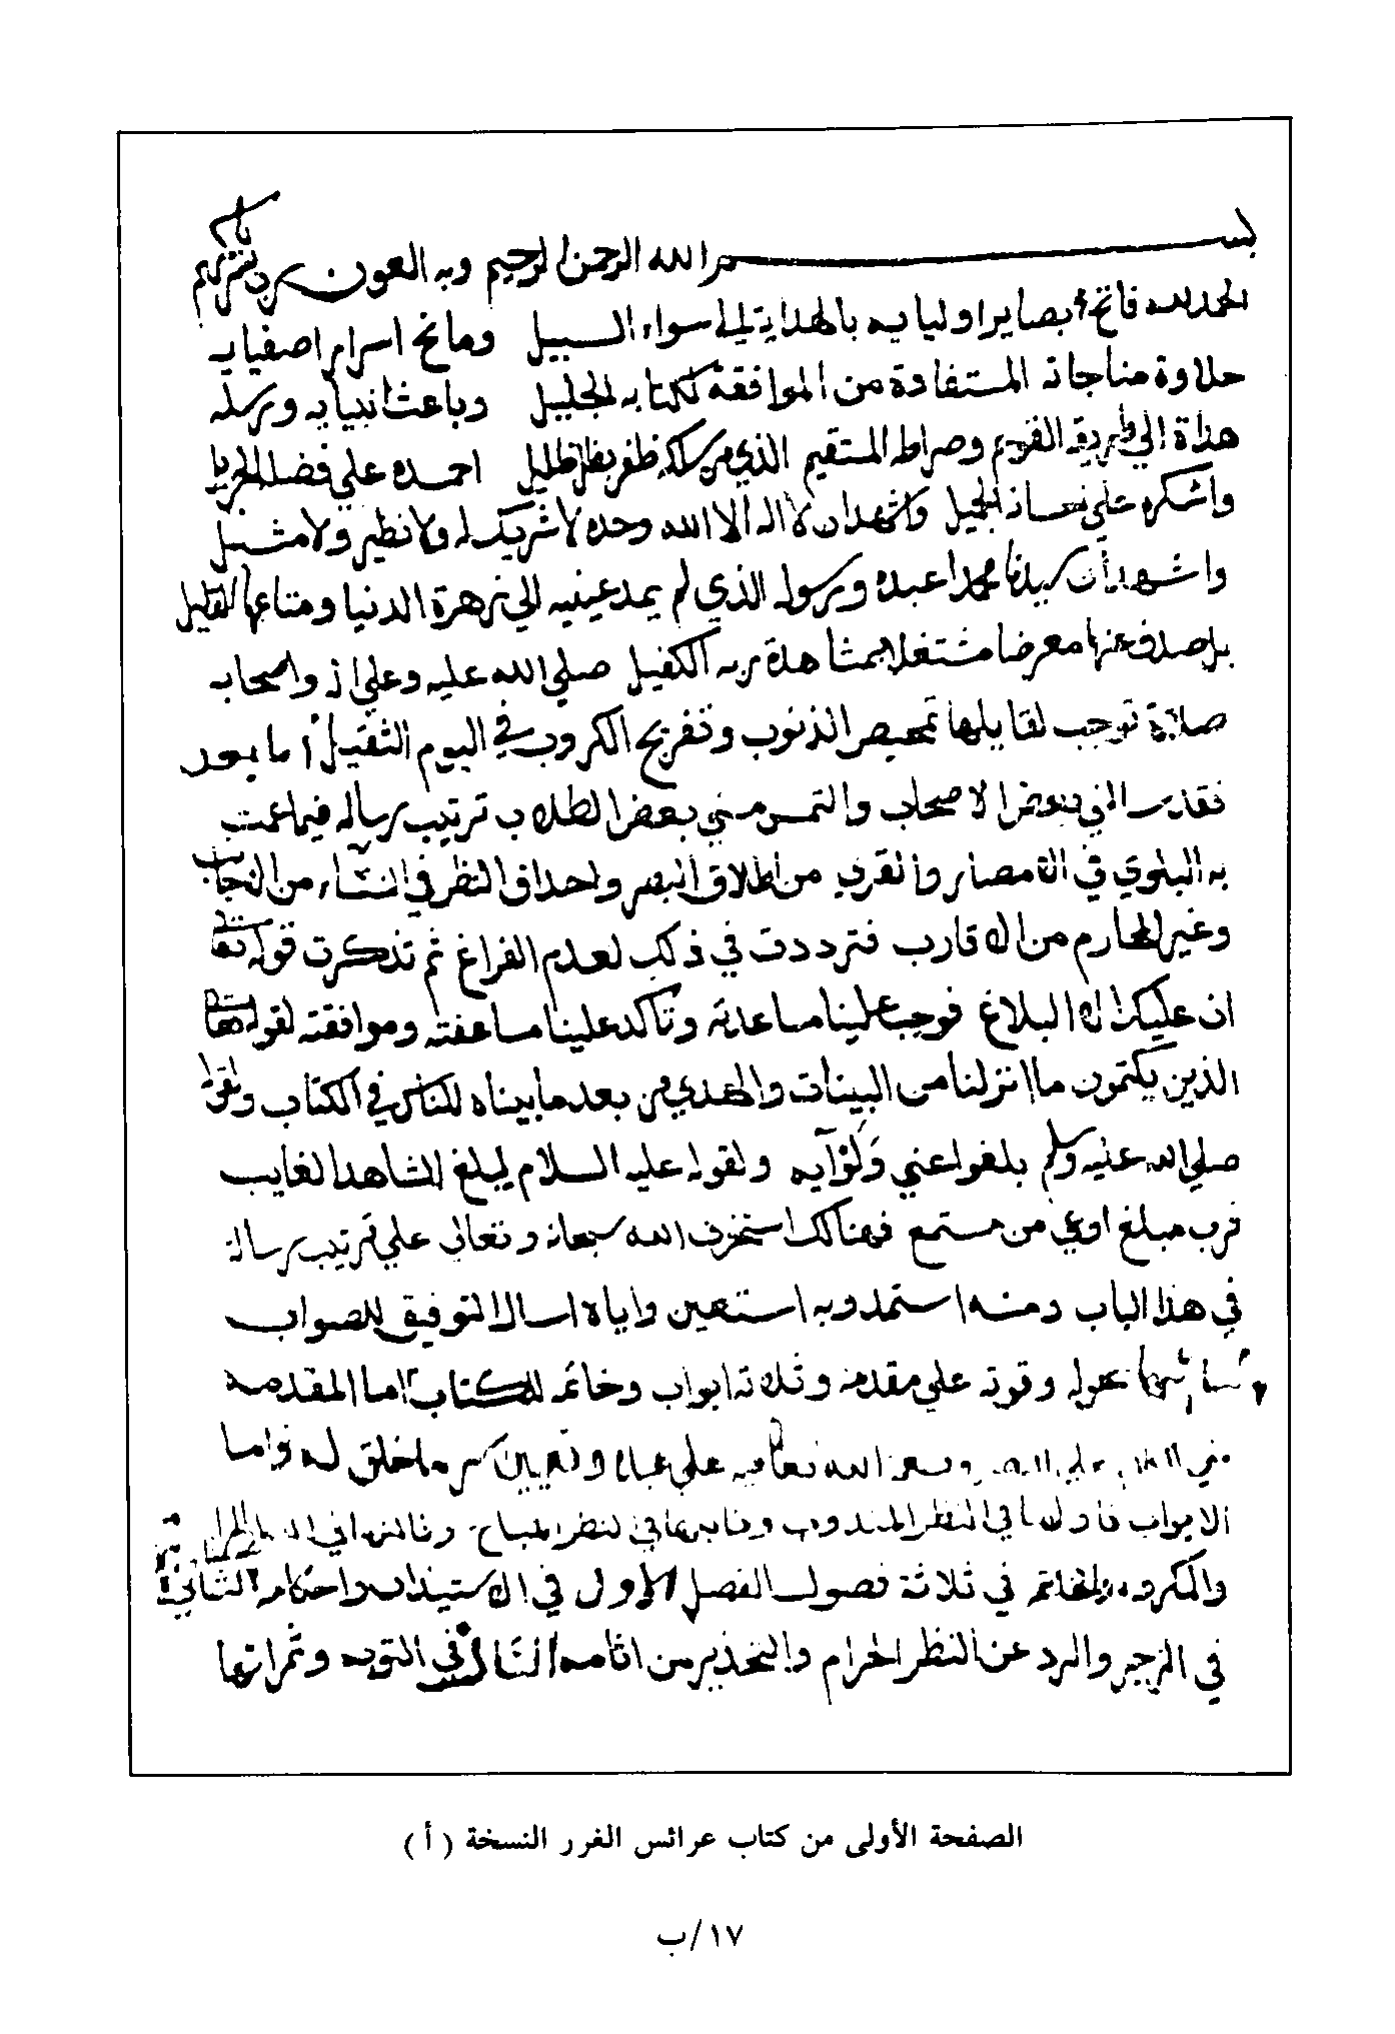 بسم الله الرحمن الرحيم وبه العون رب تمم يا كريم
الحمد لله فاتح بصاير اوليايه بالهداية الي سواء السبيل ومانح اسرار اصفيايه
حلاوة مناجاته المستفادة من الموافقة لكتابه الجليل وباعث انبيايه ورسله
هداة الي طريقه القويم وصراطه المستقيم الذي من سلكه ظفر بظل ظليل احمده علي فضله الجزيل
واشكره علي احسانه الجميل واشهد ان لا اله الا الله وحده لا شريك له ولا نظير ولا مثيل
واشهد ان سيدنا محمدا عبده ورسوله الذي لم يمد عينيه الي زهرة الدنيا ومتاعها القليل
بل صدف عنها معرضا مشتغلا بمشاهدة ربه الكفيل صلي الله عليه وعلي اله واصحابه
صلاة توجب لقايلها تمحيص الذنوب وتفريج الكروب في اليوم الثقيل اما بعد
فقد سالني بعض الاصحاب والتمس مني بعض الطلاب ترتيب رسالة فيما عمت
به البلوي في الامصار والقري من اطلاق البصر واحداق النظر في النساء من الاجانب
وغير المحارم من الاقارب فترددت في ذلك لعدم الفراغ ثم تذكرت قوله تعا
ان عليك الا البلاغ فوجب علينا مساعدته وتاكد علينا مساعفته وموافقته لقوله تعا
الذين يكتمون ما انزلنا من البينات والهدي من بعد ما بيناه للناس في الكتاب ولقوله
صلي الله عليه وسلم بلغوا عني ولو آية ولقوله عليه السلام ليبلغ الشاهد الغايب
فرب مبلغ اوعي من مستمع فهنالك استخرت الله سبحانه وتعالي علي ترتيب رسالة
في هذا الباب ومنه استمد وبه استعين واياه اسال التوفيق للصواب
بحوله وقوته علي مقدمة وثلاثة ابواب وخاتمة للكتاب اما المقدمة
الله تعا به علي عباده وتعيين سر ما خلق له واما
الابواب فاولها في النظر المندوب وثانيها في النظر المباح وثالثها في النظر الحرام
والمكروه والخاتمة في ثلاثة فصول الفصل الاول في الاستيذان واحكامه الثاني
في الزجر والرد عن النظر الحرام والتحذير من اثامه الثالث في التوبه وثمراتها
الصفحة الأولى من كتاب عرائس الغرر النسخة ( أ )
١٧/ب